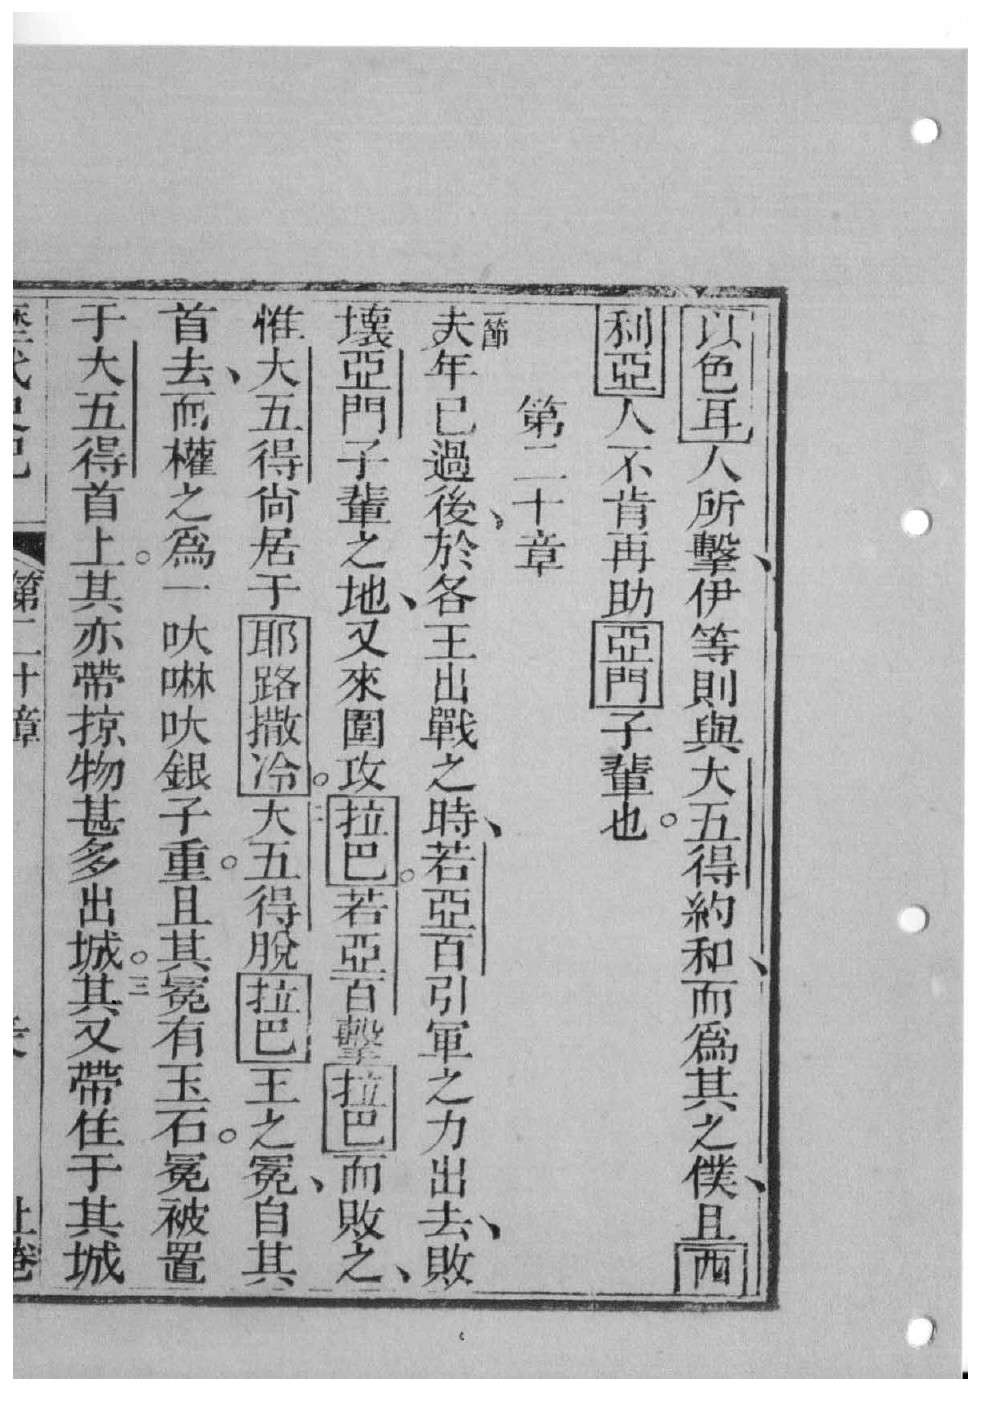 以色耳人所擊、伊等則與大五得約和、而爲其之僕、且西
利亞人不肯再助亞門子輩也。
第二十章
一節夫年已過後、於各王出戰之時、若亞百引軍之力出去、敗
壞亞門子輩之地、又來圍攻拉巴。若亞百擊拉巴而敗之、
惟大五得尙居于耶路撒冷。二大五得脫拉巴王之冕、自其
首去、而權之爲一吙啉吙銀子重。且其冕有玉石。冕被置
于大五得首上。其亦帶掠物甚多出城。三其又帶住于其城
第二十章